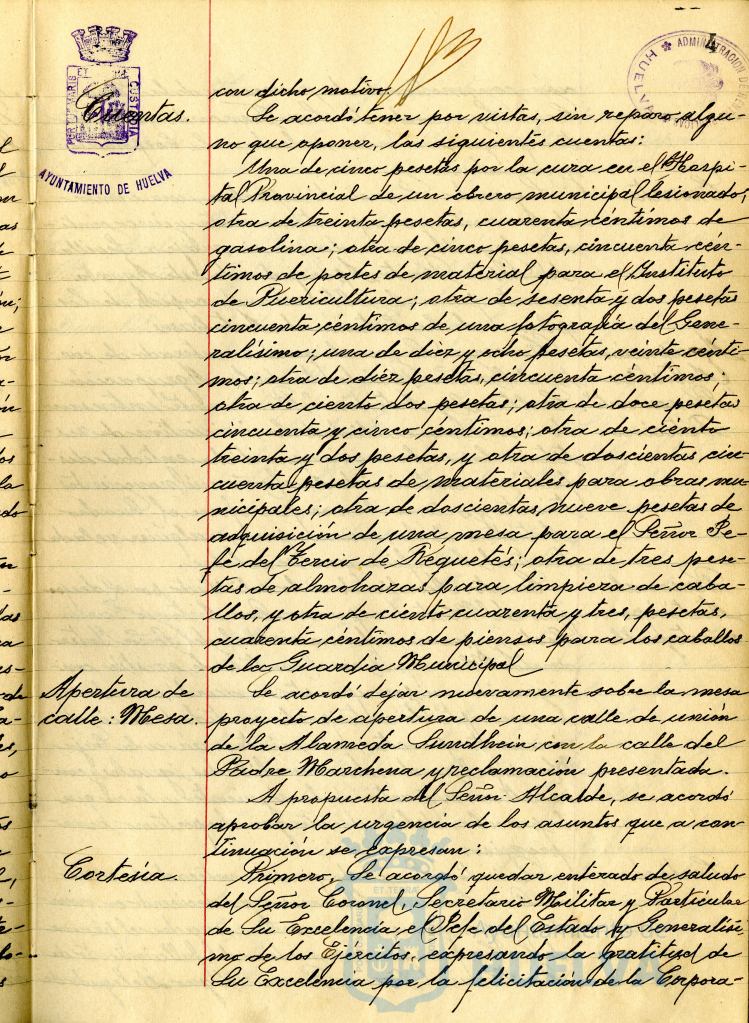 4
ADMINISTRACION
HUELVA
PORTUS MARIS ET CUSTODIA
AYUNTAMIENTO DE HUELVA
con dicho motivo.
Cuentas.
Se acordó tener por vistas, sin reparo algu-
no que oponer, las siguientes cuentas:
Una de cinco pesetas por la cura en el Hospi-
tal Provincial de un obrero municipal lesionado;
otra de treinta pesetas, cuarenta céntimos de
gasolina; otra de cinco pesetas, cincuenta cén-
timos de portes de material para el Instituto
de Puericultura; otra de sesenta y dos pesetas
cincuenta céntimos de una fotografía del Gene-
ralísimo; una de diez y ocho pesetas, veinte cénti-
mos; otra de diez pesetas, cincuenta céntimos;
otra de ciento dos pesetas; otra de doce pesetas
cincuenta y cinco céntimos; otra de ciento
treinta y dos pesetas, y otra de doscientas cin-
cuenta pesetas de materiales para obras mu-
nicipales; otra de doscientas nueve pesetas de
adquisición de una mesa para el Señor Je-
fe del Tercio de Requetés; otra de tres pese-
tas de almohazas para limpieza de caba-
llos, y otra de ciento cuarenta y tres, pesetas,
cuarenta céntimos de piensos para los caballos
de la Guardia Municipal
Apertura de
calle: Mesa.
Se acordó dejar nuevamente sobre la mesa
proyecto de apertura de una calle de unión
de la Alameda Sundhein con la calle del
Padre Marchena y reclamación presentada.
A propuesta del Señor Alcalde, se acordó
aprobar la urgencia de los asuntos que a con-
tinuación se expresan:
Cortesía.
Primero. Se acordó quedar enterado de saludo
del Señor Coronel, Secretario Militar y Particular
de Su Excelencia el Jefe del Estado y Generalísi-
mo de los Ejércitos, expresando la gratitud de
Su Excelencia por la felicitación de la Corpora-
HUELVA